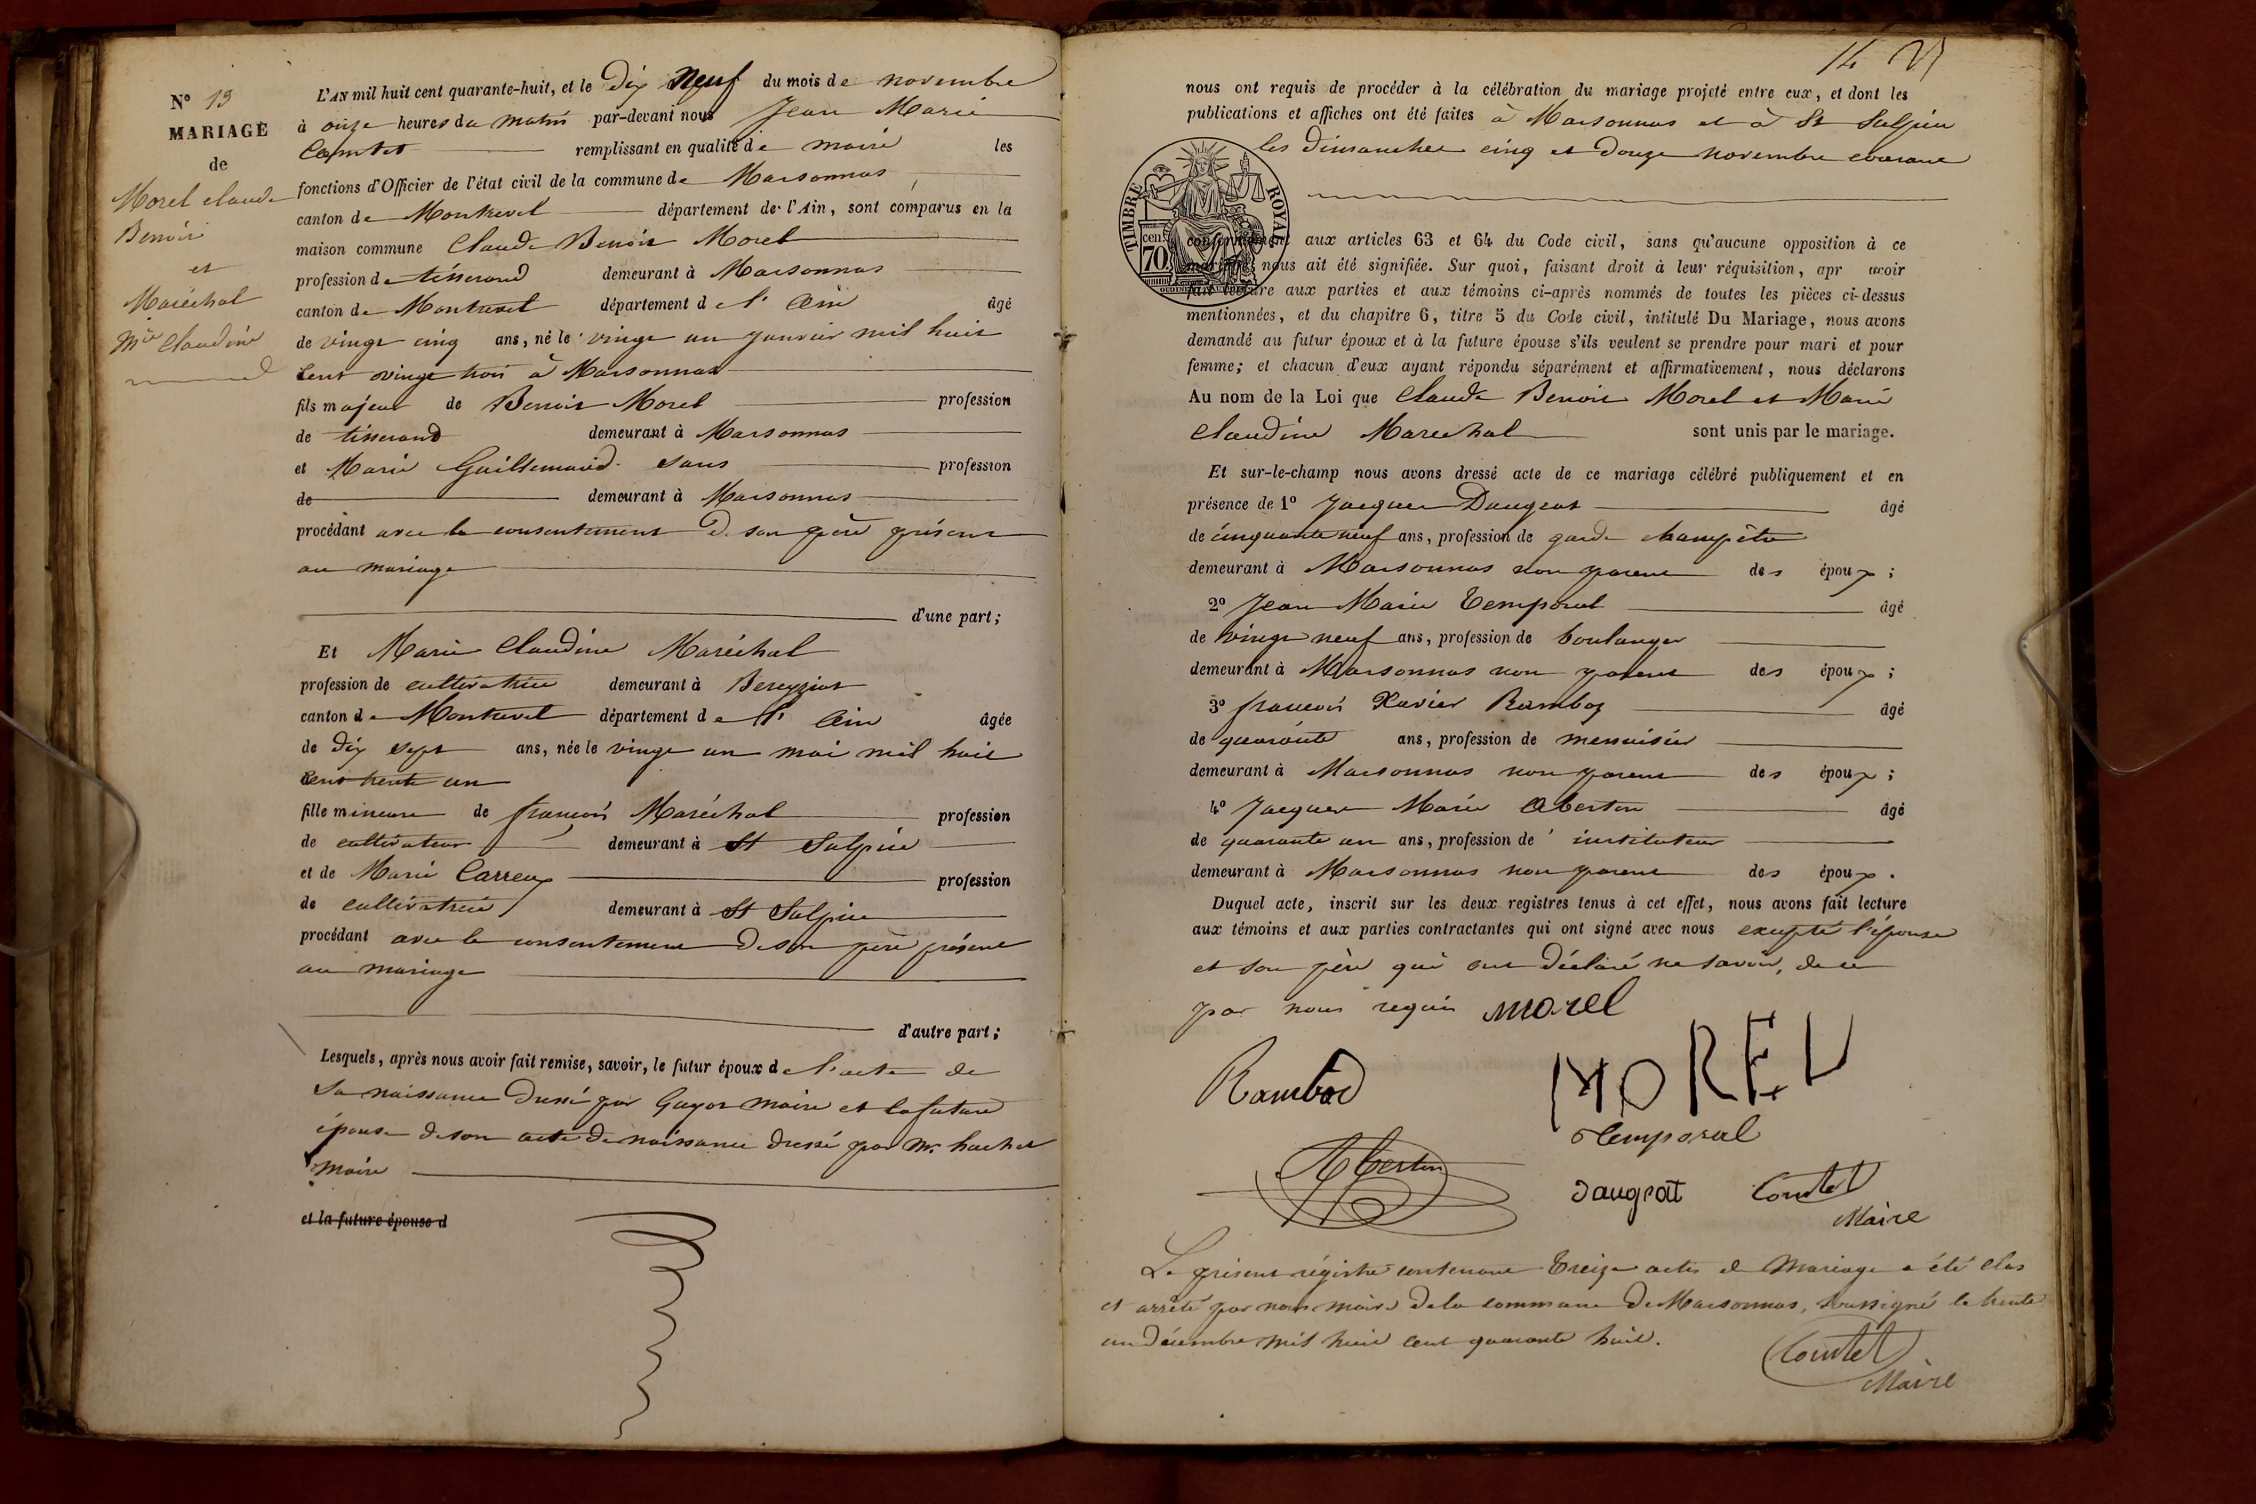 N° 13
MARIAGE
de
Morel Claude
Benoit
et
Maréchal
Mie Claudine
L'AN mil huit cent quarante-huit, et le Dix neuf du mois de novembre
à onze heures du matin par-devant nous Jean Marie
Comtet remplissant en qualité de maire les
fonctions d'Officier de l'état civil de la commune de Marsonnas,
canton de Montrevel département de l'Ain, sont comparus en la
maison commune Claude Benoit Morel
profession de tisserand demeurant à Marsonnas
canton de Montrevel département de l'Ain âgé
de vingt cinq ans, né le vingt un janvier mil huit
cent vingt trois à Marsonnas
fils majeur de Benoit Morel profession
de tisserand demeurant à Marsonnas
et Marie Guillemaud sans profession
de demeurant à Marsonnas
procédant avec le consentement de son père présent
au mariage
d'une part;
Et Marie Claudine Maréchal
profession de cultivatrice demeurant à Bereyziat
canton de Montrevel département de l'Ain âgée
de dix sept ans, née le vingt un mai mil huit
cent trente un
fille mineure de françois Maréchal profession
de cultivateur demeurant à St Sulpice
et de Marie Carreux profession
de cultivatrice demeurant à St Sulpice
procédant avec le consentement de son père présent
au mariage
d'autre part;
Lesquels, après nous avoir fait remise, savoir, le futur époux de l'acte de
sa naissance dressé par Guyot maire et la future
épouse de son acte de naissance dressé par Mr.
maire
et la future épouse d
14
nous ont requis de procéder à la célébration du mariage projeté entre eux, et dont les
publications et affiches ont été faites à Marsonnas et à St Sulpice
les dimanches cinq et douze novembre courant
TIMBRE ROYAL
70 cen.
conformément aux articles 63 et 64 du Code civil, sans qu'aucune opposition à ce
mariage nous ait été signifiée. Sur quoi, faisant droit à leur réquisition, apr avoir
fait lecture aux parties et aux témoins ci-après nommés de toutes les pièces ci-dessus
mentionnées, et du chapitre 6, titre 5 du Code civil, intitulé Du Mariage, nous avons
demandé au futur époux et à la future épouse s'ils veulent se prendre pour mari et pour
femme; et chacun d'eux ayant répondu séparément et affirmativement, nous déclarons
Au nom de la Loi que Claude Benoit Morel et Marie
Claudine Marechal sont unis par le mariage.
Et sur-le-champ nous avons dressé acte de ce mariage célébré publiquement et en
présence de 1° Jacques Daugeat âgé
de cinquante neuf ans, profession de garde champêtre
demeurant à Marsonnas non parent des époux;
2° Jean Marie Temporal âgé
de vingt neuf ans, profession de boulanger
demeurant à Marsonnas non parent des époux;
3° françois Xavier Ramboz âgé
de quarante ans, profession de menuisier
demeurant à Marsonnas non parent des époux;
4° Jacques Marie Aberton âgé
de quarante un ans, profession de instituteur
demeurant à Marsonnas non parent des époux.
Duquel acte, inscrit sur les deux registres tenus à cet effet, nous avons fait lecture
aux témoins et aux parties contractantes qui ont signé avec nous excepté l'épouse
et son père qui ont déclaré ne savoir, de ce
par nous requis morel
Ramboz MOREL
Temporal
Aberton daugeat Comtet
Maire
Le présent régistre contenant treize actes de Mariage a été clos
et arrêté par nous maire de la commune de Marsonnas, soussigné le trente
un décembre mil huit cent quarante huit.
Comtet
Maire